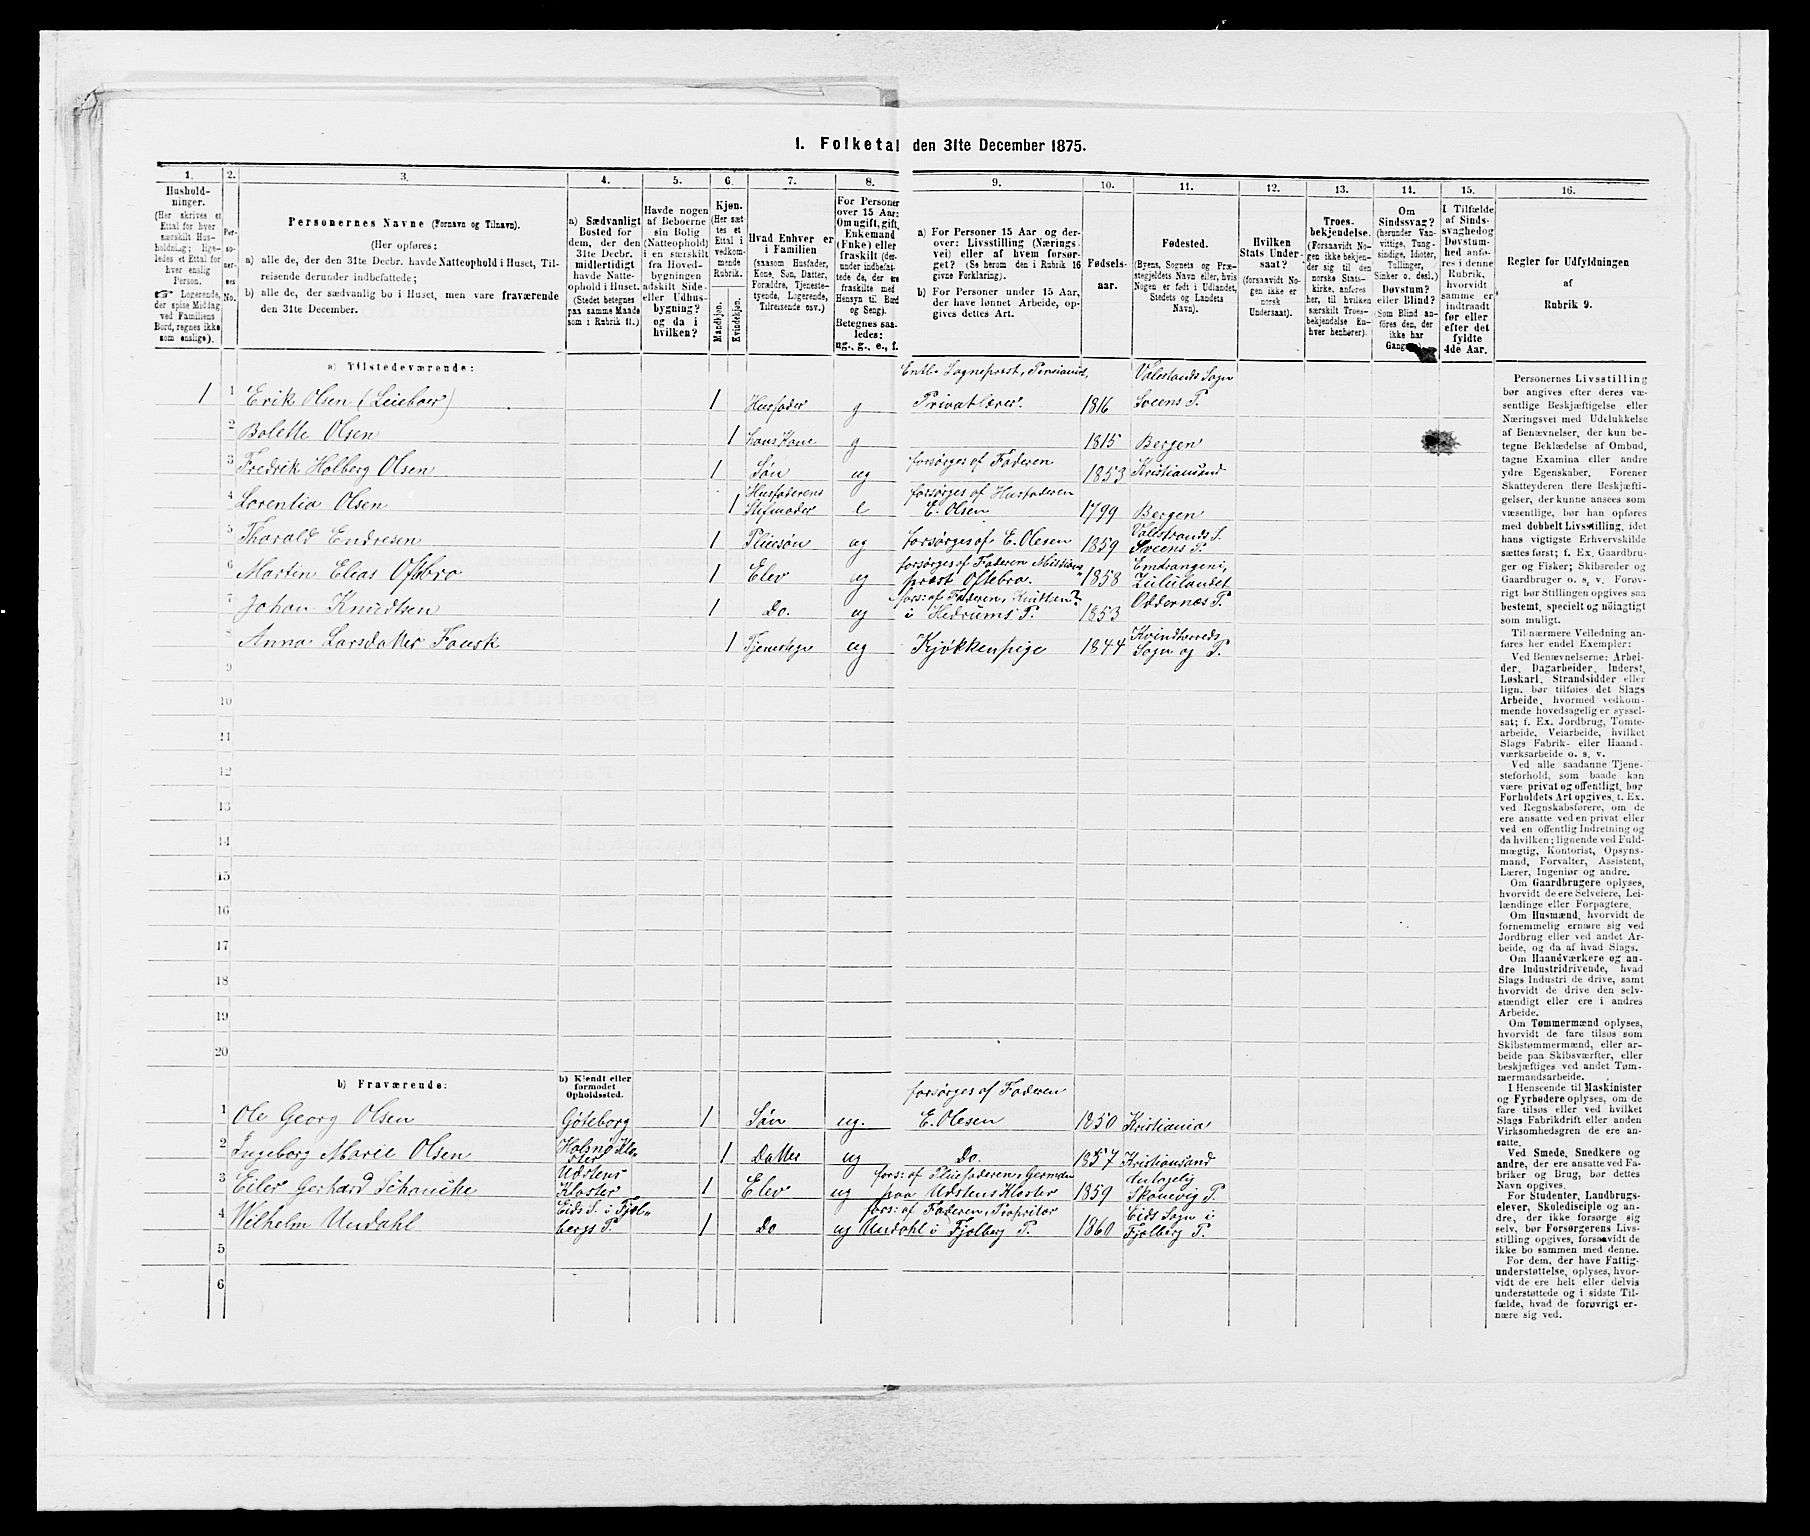 1. Folketal den 31te December 1875.
1. 2. 3. 4. 5. 6. 7. 8. 9. 10. 11. 12. 13. 14. 15. 16.
Hushold-
ninger.
(Her skrives et
Ettal for hver
særskilt Hus-
holdning; lige-
ledes et Ettal for
hver enslig
Person.
☞ Logerende,
der spise Middag
ved Familiens
Bord, regnes ikke
som enslige).
Per-
so-
ner-
nes
No.
Personernes Navne (Fornavn og Tilnavn).
(Her opføres:
a) alle de, der den 31te Decbr. havde Natteophold i Huset, Til-
reisende derunder indbefattede;
b) alle de, der sædvanlig bo i Huset, men vare fraværende
den 31te December.
a) Sædvanligt
Bosted for
dem, der den
31te Decbr.
midlertidigt
havde Natte-
ophold i Huset.
(Stedet betegnes
paa samme Maade
som i Rubrik 11.)
Havde nogen
af Beboerne
sin Bolig
(Natteophold)
i en særskilt
fra Hoved-
bygningen
adskilt Side-
eller Udhus-
bygning?
og da i
hvilken?
Kjøn.
(Her sæt-
tes et
Ettal i
vedkom-
mende
Rubrik.
Mandkjøn.
Kvindekjøn.
Hvad Enhver er
i Familien
(saasom Husfader,
Kone, Søn, Datter,
Forældre, Tjeneste-
tyende, Logerende,
Tilreisende osv.)
For Personer
over 15 Aar:
Om ugift, gift,
Enkemand
(Enke) eller
fraskilt (der-
under indbefat-
tede de, der ere
fraskilte med
Hensyn til Bord
og Seng).
Betegnes saa-
ledes:
ug., g., e., f.
a) For Personer 15 Aar og der-
over: Livsstilling (Nærings-
vei) eller af hvem forsør-
get? (Se herom den i Rubrik 16
givne Forklaring).
b) For Personer under 15 Aar,
der have lønnet Arbeide, op-
gives dettes Art.
Fødsels-
aar.
Fødested.
(Byens, Sognets og Præ-
stegjeldets Navn eller, hvis
Nogen er født i Udlandet,
Stedets og Landets
Navn).
Hvilken
Stats Under-
saat?
(forsaavidt No-
gen ikke er
norsk
Undersaat).
Troes-
bekjendelse.
(Forsaavidt No-
gen ikke bekjen-
der sig til den
norske Stats-
kirke, anføres
her, til hvilken
særskilt Troes-
bekjendelse En-
hver henhører).
Om
Sindssvag?
(herunder Van-
vittige, Tung-
sindige, Idioter,
Tullinger,
Sinker o. desl.)
Døvstum?
eller Blind?
(Som Blind an-
føres den, der
ikke har
I Tilfælde
af Sinds-
svaghed og
Døvstum-
hed anfø-
res i denne
Rubrik,
hvorvidt
samme er
indtraadt
før eller
efter det
fyldte
4de Aar.
Regler for Udfyldningen
af
Rubrik 9.
a) Tilstedeværende:
1 1 Erik Olsen (Leieboer) 1 Husfader g Entl. Sogneprest, Pensionist, Privatlærer. 1816 Valestrands Sogn Sveens P.
2 Bolette Olsen 1 hans Kone g 1815 Bergen
3 Fredrik Holberg Olsen 1 Søn ug forsørges af Faderen 1853 Kristiansand
4 Lorentia Olsen 1 Husfaderens Stifmoder e forsørges af Husfaderen E. Olsen 1799 Bergen
5 Thorald Endresen 1 Pleiesøn ug forsørges af E. Olesen 1859 Valestrands S. Sveens P.
6 Martin Elias Oftebro 1 Elev ug forsørges af Faderen Missions- prest Oftebro. 1858 Emtrangeni, Zululandet
7 Johan Knudtsen 1 Do. ug fors: af Faderen, i Hedrums P. 1853 Oddernæs P.
8 Anna Larsdatter 1 ug Kjøkkenpige 1844 Kvindherreds Sogn og P.
9
10
11
12
13
14
15
16
17
18
19
20
b) Fraværende:
b) Kjendt eller
formodet
Opholdssted.
1 Ole Georg Olsen Göteborg 1 Søn ug. forsørges af Faderen E. Olesen 1850 Kristiania
2 Ingeborg Marie Olsen Halsnø Klo- ster 1 Datter ug Do. 1857 Kristiansand
3 Eiler Gerhard Schanche Udstens Kloster 1 Elev ug fors: af Pleiefaderen, paa Udstens Kloster 1859 Skonevig P.
4 Wilhelm Undahl Eids S. i Fjel- bergs P. 1 Do ug fors: af Faderen, Propritær Undahl i Fjelberg P. 1860 Eids Sogn i Fjelberg P.
5
6
Personernes Livsstilling
bør angives efter deres væ-
sentlige Beskjæftigelse eller
Næringsvei med Udelukkelse
af Benævnelser, der kun be-
tegne Beklædelse af Ombud,
tagne Examina eller andre
ydre Egenskaber. Forener
Skatteyderen flere Beskjæfti-
gelser, der kunne ansees som
væsentlige, bør han opføres
med dobbelt Livsstilling, idet
hans vigtigste Erhvervskilde
sættes først; f. Ex. Gaardbru-
ger og Fisker; Skibsreder og
Gaardbruger o. s. v. Forøv-
rigt bør Stillingen opgives saa
bestemt, specielt og nöiagtigt
som muligt.
Til nærmere Veiledning an-
føres her endel Exempler:
Ved Benævnelserne: Arbei-
der, Dagarbeider, Inderst,
Løskarl, Strandsidder eller
lign. bør tilføies det Slags
Arbeide, hvormed vedkom-
mende hovedsagelig er syssel-
sat; f. Ex. Jordbrug, Tomte-
arbeide, Veiarbeide, hvilket
Slags Fabrik- eller Haand-
værksarbeide o. s. v.
Ved alle saadanne Tjene-
steforhold, som baade kan
være privat og offentligt, bør
Forholdets Art opgives, t. Ex.
ved Regnskabsførere, om de
ere ansatte ved en privat eller
ved en offentlig Indretning og
da hvilken; lignende ved Fuld-
mægtig, Kontorist, Opsyns-
mand, Forvalter, Assistent,
Lærer, Ingeniør og andre.
Om Gaardbrugere oplyses,
hvorvidt de ere Selveiere, Lei-
lændinge eller Forpagtere.
Om Husmænd, hvorvidt de
fornemmelig ernære sig ved
Jordbrug eller ved andet Ar-
beide, og da af hvad Slags.
Om Haandværkere og an-
dre Industridrivende, hvad
Slags Industri de drive, samt
hvorvidt de drive den selv-
stændigt eller ere i andres
Arbeide.
Om Tømmermænd oplyses,
hvorvidt de fare tilsøs som
Skibstømmermænd, eller ar-
beide paa Skibsværfter, eller
beskjæftiges ved andet Tøm-
mermandsarbeide.
I Henseende til Maskinister
og Fyrbødere oplyses, om de
fare tilsøs eller ved hvilket
Slags Fabrikdrift eller anden
Virksomhedsgren de ere an-
satte.
Ved Smede, Snedkere og
andre, der ere ansatte ved Fa-
briker og Brug, bør dettes
Navn opgives.
For Studenter, Landbrugs-
elever, Skoledisciple og an-
dre, der ikke forsørge sig
selv, bør Forsørgerens Livs-
stilling opgives, forsaavidt de
ikke bo sammen med denne.
For dem, der have Fattig-
understøttelse, oplyses, hvor-
vidt de ere helt eller delvis
understøttede og i sidste Til-
fælde, hvad de forøvrigt er-
nære sig ved.